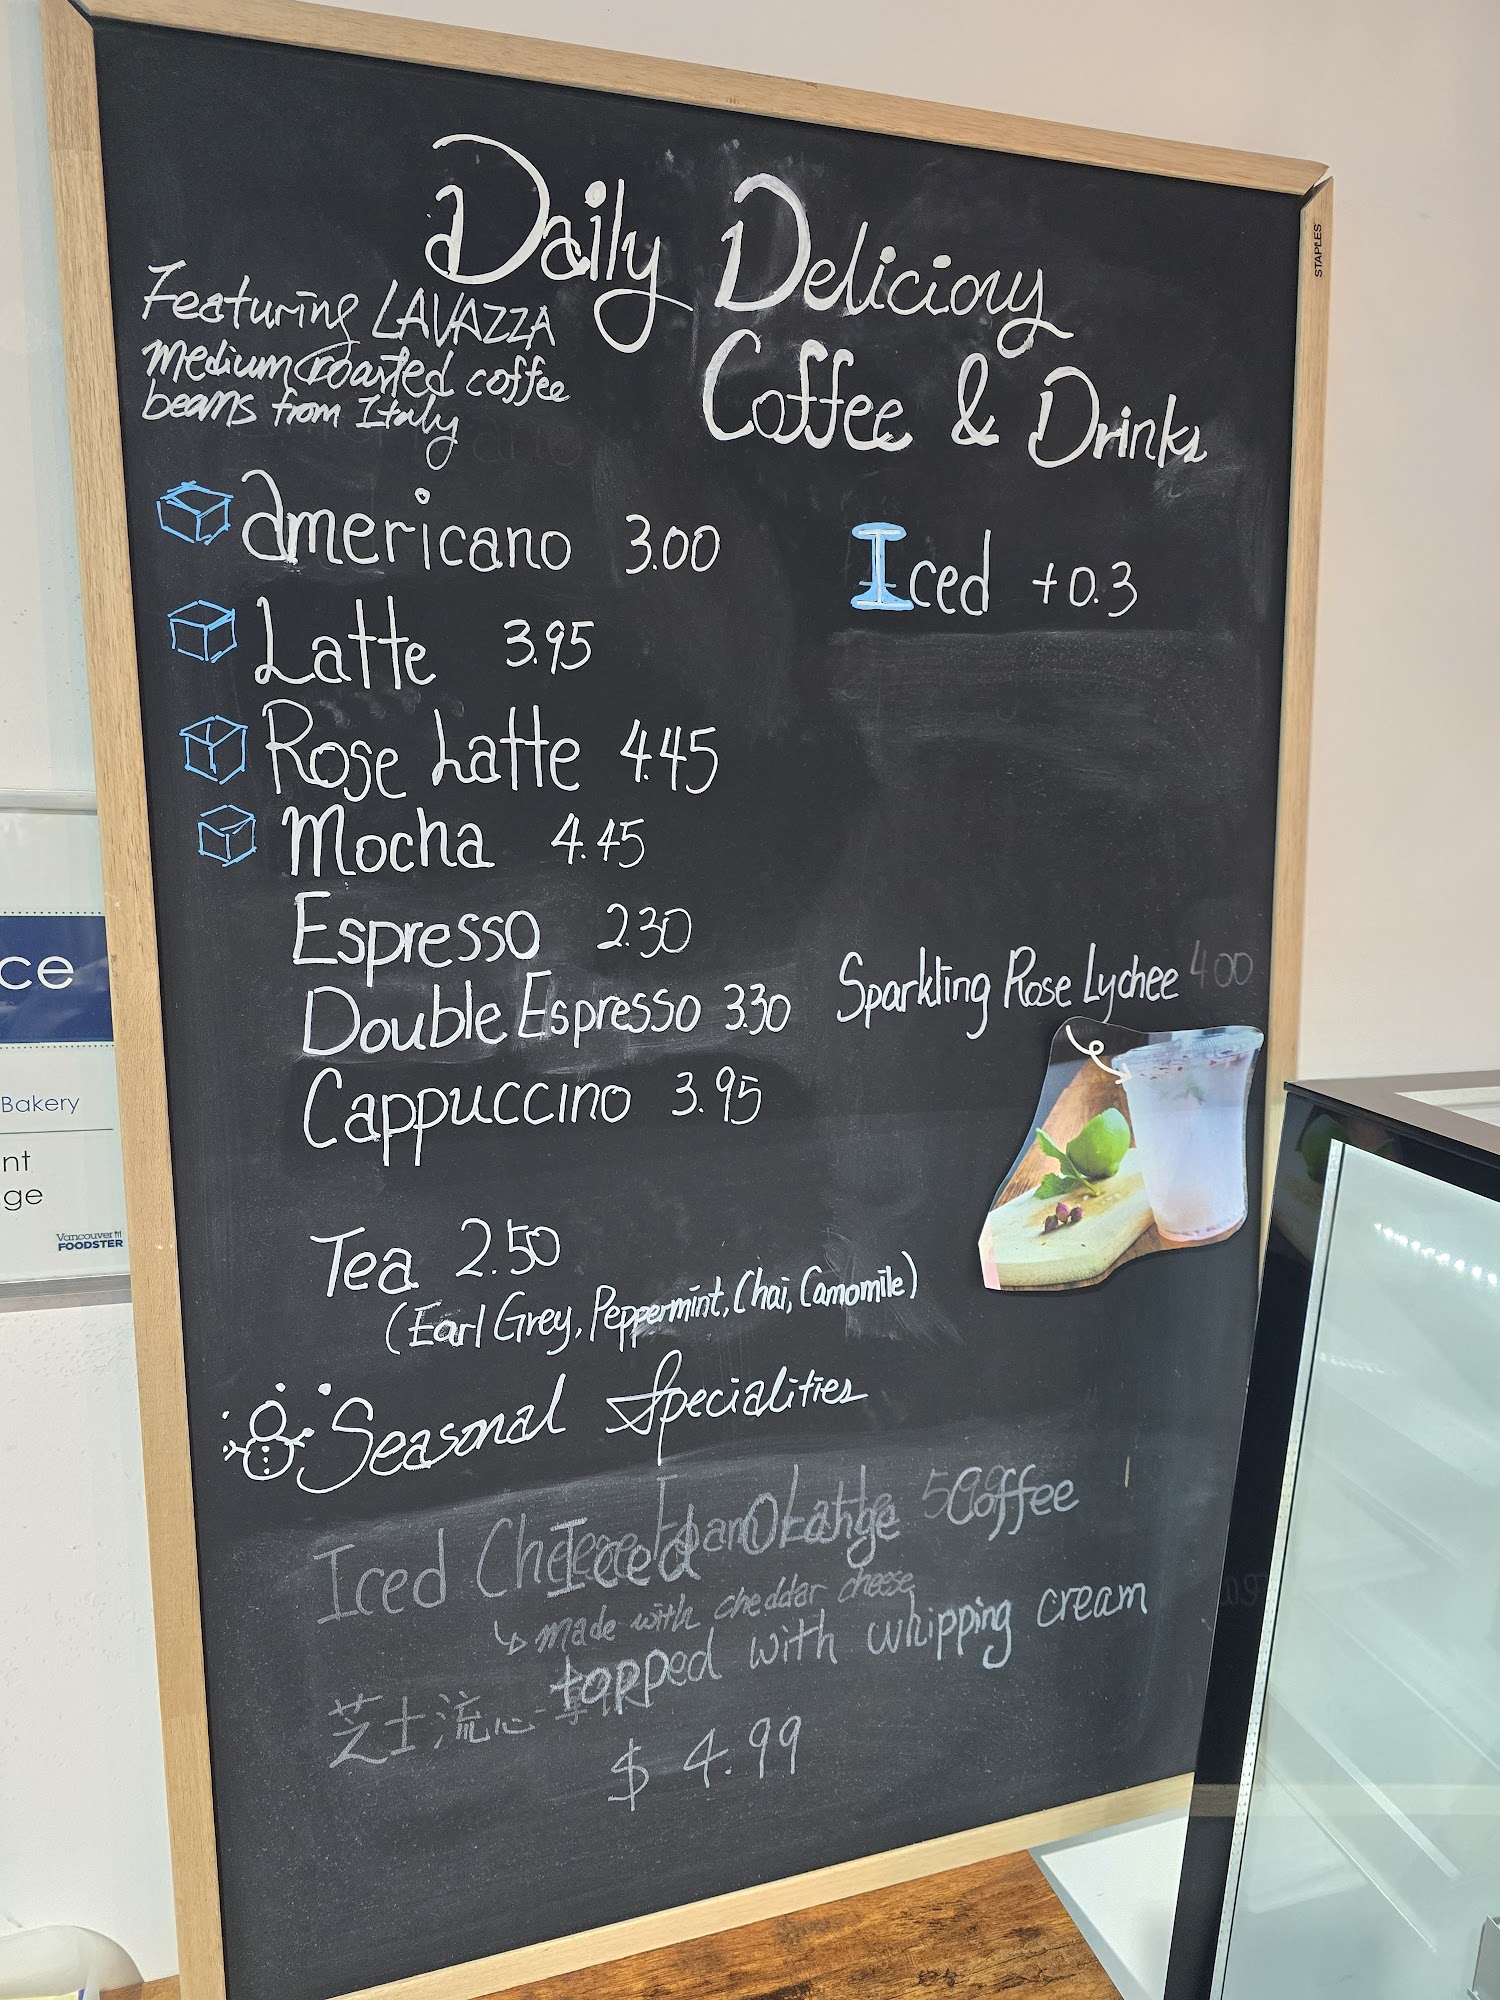 Daily Delicious
Coffee & Drinks
Featuring LAVAZZA
medium roasted coffee
beans from Italy
americano 3.00
Iced +0.3
Latte 3.95
Rose Latte 4.45
Mocha 4.45
Espresso 2.30
Double Espresso 3.30
Sparkling Rose Lychee 4.00
Cappuccino 3.95
Tea 2.50
(Earl Grey, Peppermint, Chai, Camomile)
Seasonal Specialities
Iced Orange Coffee
Iced Cheese Foam Latte
made with cheddar cheese
topped with whipping cream
芝士流心
$ 4.99
STAPLES
ce
Bakery
nt
ge
Vancouver
FOODSTER